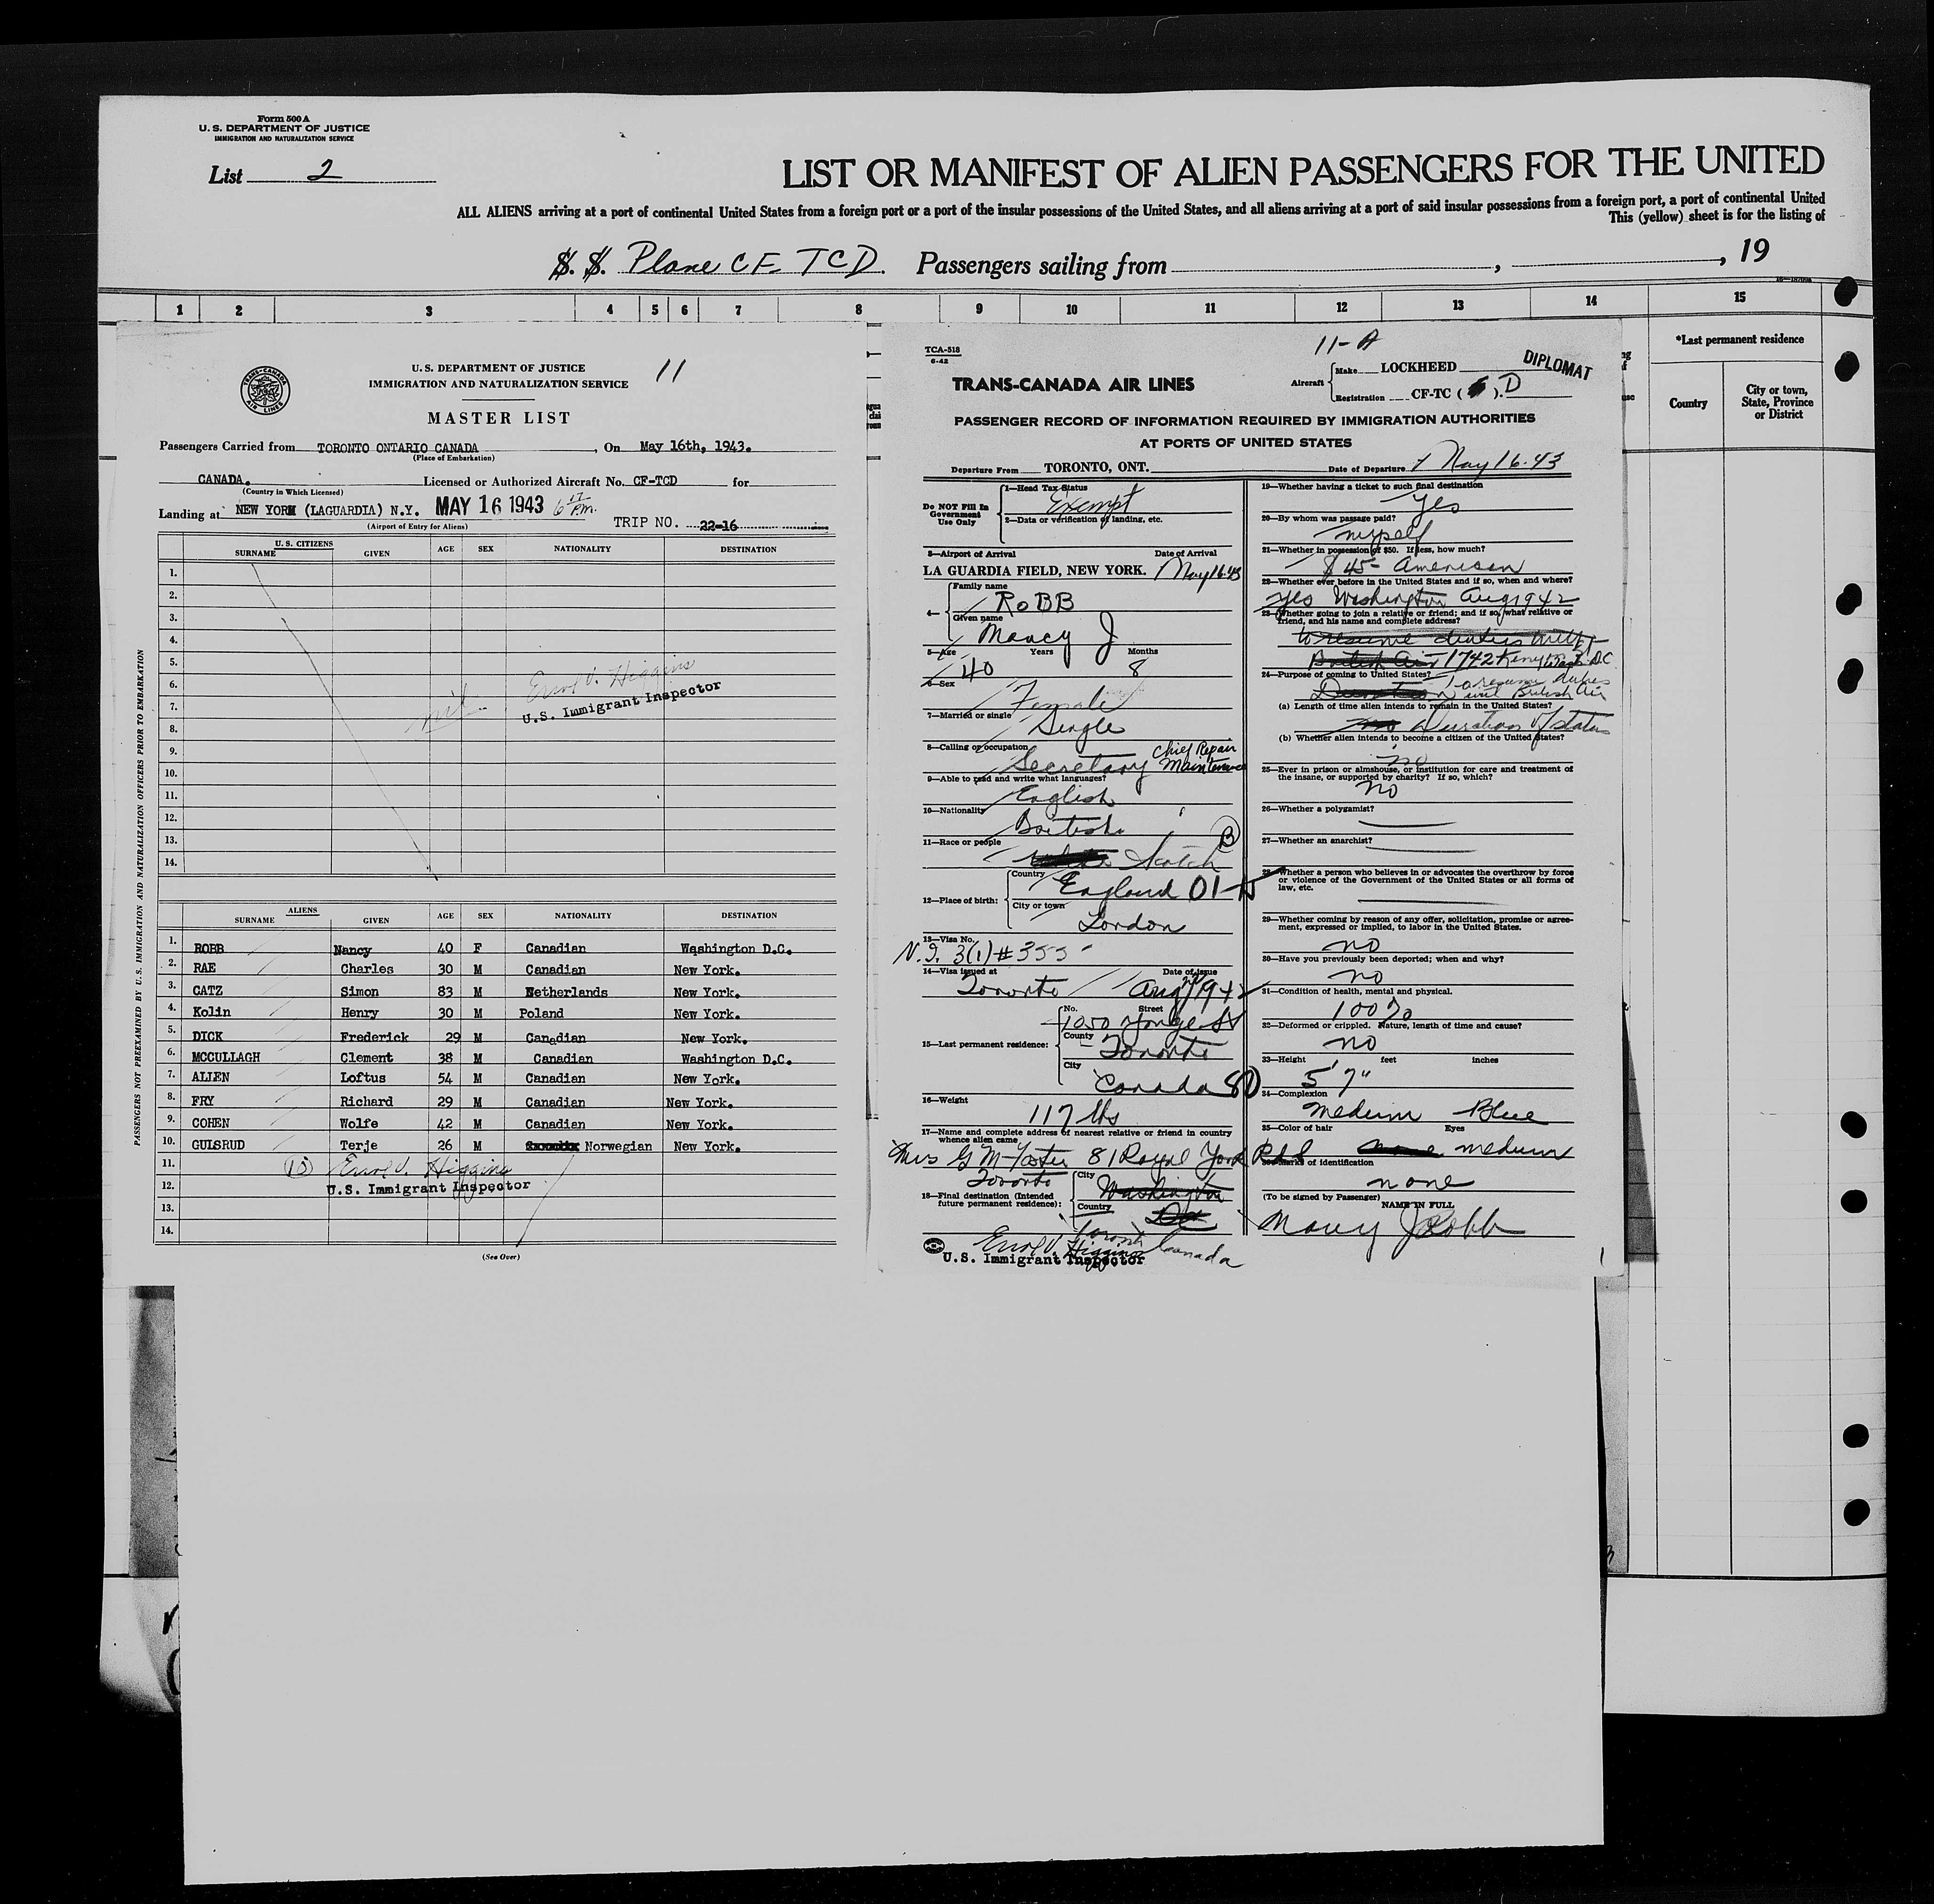 Form 500 A
U. S. DEPARTMENT OF JUSTICE
IMMIGRATION AND NATURALIZATION SERVICE
List 2
LIST OR MANIFEST OF ALIEN PASSENGERS FOR THE UNITED
ALL ALIENS arriving at a port of continental United States from a foreign port or a port of the insular possessions of the United States, and all aliens arriving at a port of said insular possessions from a foreign port, a port of continental United
This (yellow) sheet is for the listing of
S. S. Plane CF TCD. Passengers sailing from , , 19
1 2 3 4 5 6 7 8 9 10 11 12 13 14 15
*Last permanent residence
Country
City or town, State, Province or District
TRANS-CANADA AIR LINES
U. S. DEPARTMENT OF JUSTICE
IMMIGRATION AND NATURALIZATION SERVICE
11
MASTER LIST
Passengers Carried from TORONTO ONTARIO CANADA, On May 16th, 1943.
(Place of Embarkation)
CANADA. Licensed or Authorized Aircraft No. CF-TCD for
(Country in Which Licensed)
Landing at NEW YORK (LAGUARDIA) N.Y. MAY 16 1943 6 17 P.M.
(Airport of Entry for Aliens)
TRIP NO. 22-16
U. S. CITIZENS
SURNAME GIVEN AGE SEX NATIONALITY DESTINATION
1.
2.
3.
4.
5.
6.
7.
8.
9.
10.
11.
12.
13.
14.
nil
Errol V. Higgins
U.S. Immigrant Inspector
PASSENGERS NOT PREEXAMINED BY U. S. IMMIGRATION AND NATURALIZATION OFFICERS PRIOR TO EMBARKATION
ALIENS
SURNAME GIVEN AGE SEX NATIONALITY DESTINATION
1. ROBB Nancy 40 F Canadian Washington D.C.
2. RAE Charles 30 M Canadian New York.
3. CATZ Simon 83 M Netherlands New York.
4. Kolin Henry 30 M Poland New York.
5. DICK Frederick 29 M Canadian New York.
6. MCCULLAGH Clement 38 M Canadian Washington D.C.
7. ALLEN Loftus 54 M Canadian New York.
8. FRY Richard 29 M Canadian New York.
9. COHEN Wolfe 42 M Canadian New York.
10. GULSRUD Terje 26 M Norwegian New York.
11. (10) Errol V. Higgins
12. U.S. Immigrant Inspector
13.
14.
(See Over)
TCA-518
6-42
11-A
TRANS-CANADA AIR LINES
Aircraft Make LOCKHEED
Registration CF-TC ( ). D
DIPLOMAT
PASSENGER RECORD OF INFORMATION REQUIRED BY IMMIGRATION AUTHORITIES
AT PORTS OF UNITED STATES
Departure From TORONTO, ONT. Date of Departure May 16-43
Do NOT Fill In Government Use Only
1—Head Tax Status
Exempt
2—Data or verification of landing, etc.
3—Airport of Arrival Date of Arrival
LA GUARDIA FIELD, NEW YORK. May 16-43
4— Family name
ROBB
Given name
Nancy J
5—Age Years Months
40 8
6—Sex
Female
7—Married or single
Single
8—Calling or occupation
Secretary Chief Repair Maintenance
9—Able to read and write what languages?
English
10—Nationality
British
B
11—Race or people
Scotch
12—Place of birth: Country
England 01
City or town
London
13—Visa No.
N.I. 3(1) #355
14—Visa issued at Date of Issue
Toronto Aug 1942
15—Last permanent residence: No. Street
1050 Yonge St
County
Toronto
City
Canada 80
16—Weight
117 lbs
17—Name and complete address of nearest relative or friend in country whence alien came
Mrs G M Foster 81 Royal York Rd
Toronto
18—Final destination (Intended future permanent residence): City
Washington
Country
DC
Toronto
Canada
Errol V. Higgins
U.S. Immigrant Inspector
19—Whether having a ticket to such final destination
Yes
20—By whom was passage paid?
myself
21—Whether in possession of $50. If less, how much?
$45- American
22—Whether ever before in the United States and if so, when and where?
Yes Washington Aug 1942
23—Whether going to join a relative or friend; and if so, what relative or friend, and his name and complete address?
to resume duties with
British Air 1742 Wash. D.C.
24—Purpose of coming to United States?
To resume duties with British Air
(a) Length of time alien intends to remain in the United States?
Duration of status
(b) Whether alien intends to become a citizen of the United States?
no
25—Ever in prison or almshouse, or institution for care and treatment of the insane, or supported by charity? If so, which?
no
26—Whether a polygamist?
27—Whether an anarchist?
28—Whether a person who believes in or advocates the overthrow by force or violence of the Government of the United States or all forms of law, etc.
29—Whether coming by reason of any offer, solicitation, promise or agreement, expressed or implied, to labor in the United States.
no
30—Have you previously been deported; when and why?
no
31—Condition of health, mental and physical.
100%
32—Deformed or crippled. Nature, length of time and cause?
no
33—Height feet inches
5' 7"
34—Complexion
Medium Blue
35—Color of hair Eyes
medium
36—Marks of identification
none
(To be signed by Passenger)
NAME IN FULL
Nancy J Robb